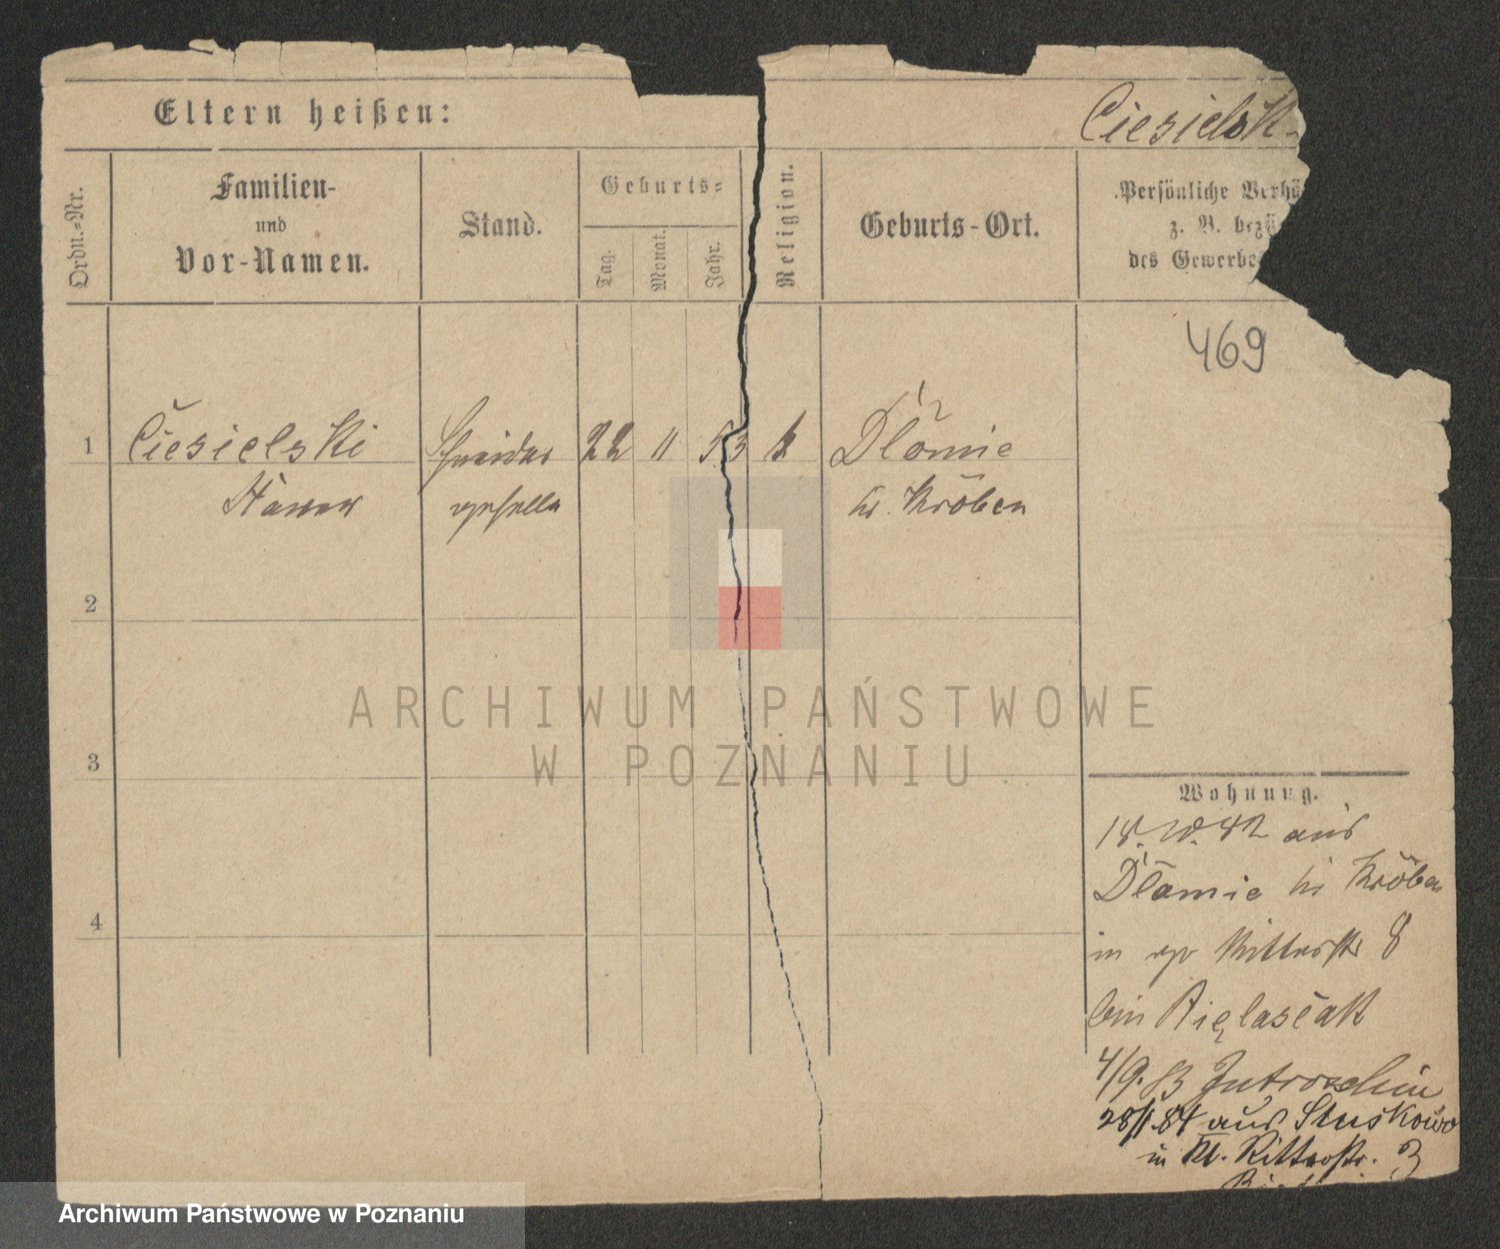 Eltern heißen:
Ciesielsk
Ordn.-Nr.
Familien-
und
Vor-Namen.
Stand.
Geburts-
Tag.
Monat.
Jahr.
Religion.
Geburts-Ort.
Persönliche Verhä
z. B. bezü
des Gewerbe
469
1 Ciesielski Schneider 22 11 53 k Dłonie
geselle bei Kröben
2
3
4
Wohnung.
18. 10. 82 aus
bei Kröben
in gr Ritterstr 8
bei
4/9. 83 Jutroschin
28/1.84 aus Sluskowo
in Kl. Ritterstr. 3
ARCHIWUM PAŃSTWOWE
W POZNANIU
Archiwum Państwowe w Poznaniu